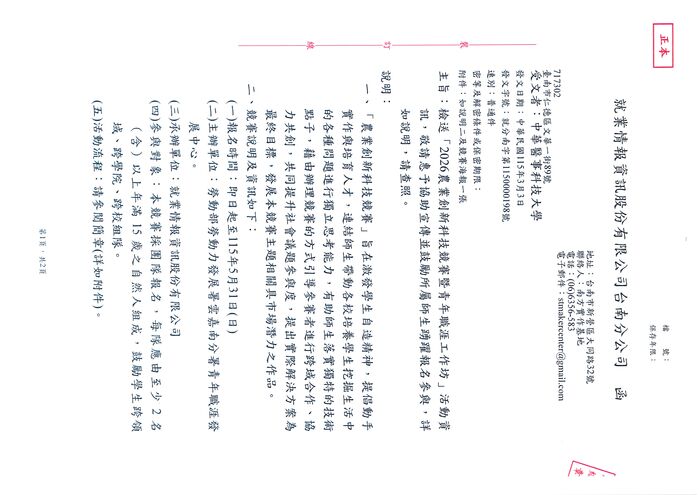 正本
檔　號：
保存年限：
就業情報資訊股份有限公司台南分公司　函
地址：台南市新營區大同路32號
聯絡人：南方實作基地
電話：(06)6356-583
電子郵件：stmakercenter@gmail.com
717302
臺南市仁德區文華一街89號
受文者：中華醫事科技大學
發文日期：中華民國115年3月3日
發文字號：就分南字第1150000198號
速別：普通件
密等及解密條件或保密期限：
附件：如說明二及競賽海報一張
主旨：檢送「2026農業創新科技競賽暨青年職涯工作坊」活動資
訊，敬請惠予協助宣傳並鼓勵所屬師生踴躍報名參與，詳
如說明，請查照。
說明：
一、「農業創新科技競賽」旨在激發學生自造精神，提倡動手
實作與培育人才，連結師生帶動各校培養學生挖掘生活中
的各種問題進行獨立思考能力，有助師生落實獨特的技術
點子，藉由辦理競賽的方式引導參賽者進行跨域合作、協
力共創，共同提升社會議題參與度，提出實際解決方案為
最終目標，發展本競賽主題相關具市場潛力之作品。
二、競賽說明及資訊如下：
(一)報名時間：即日起至115年5月31日(日)
(二)主辦單位：勞動部勞動力發展署雲嘉南分署青年職涯發
展中心。
(三)承辦單位：就業情報資訊股份有限公司
(四)參與對象：本競賽採團隊報名，每隊應由至少2名
（含）以上年滿15歲之自然人組成，鼓勵學生跨領
域、跨學院、跨校組隊。
(五)活動流程：請參閱簡章(詳如附件)。
裝
訂
線
第1頁，共2頁